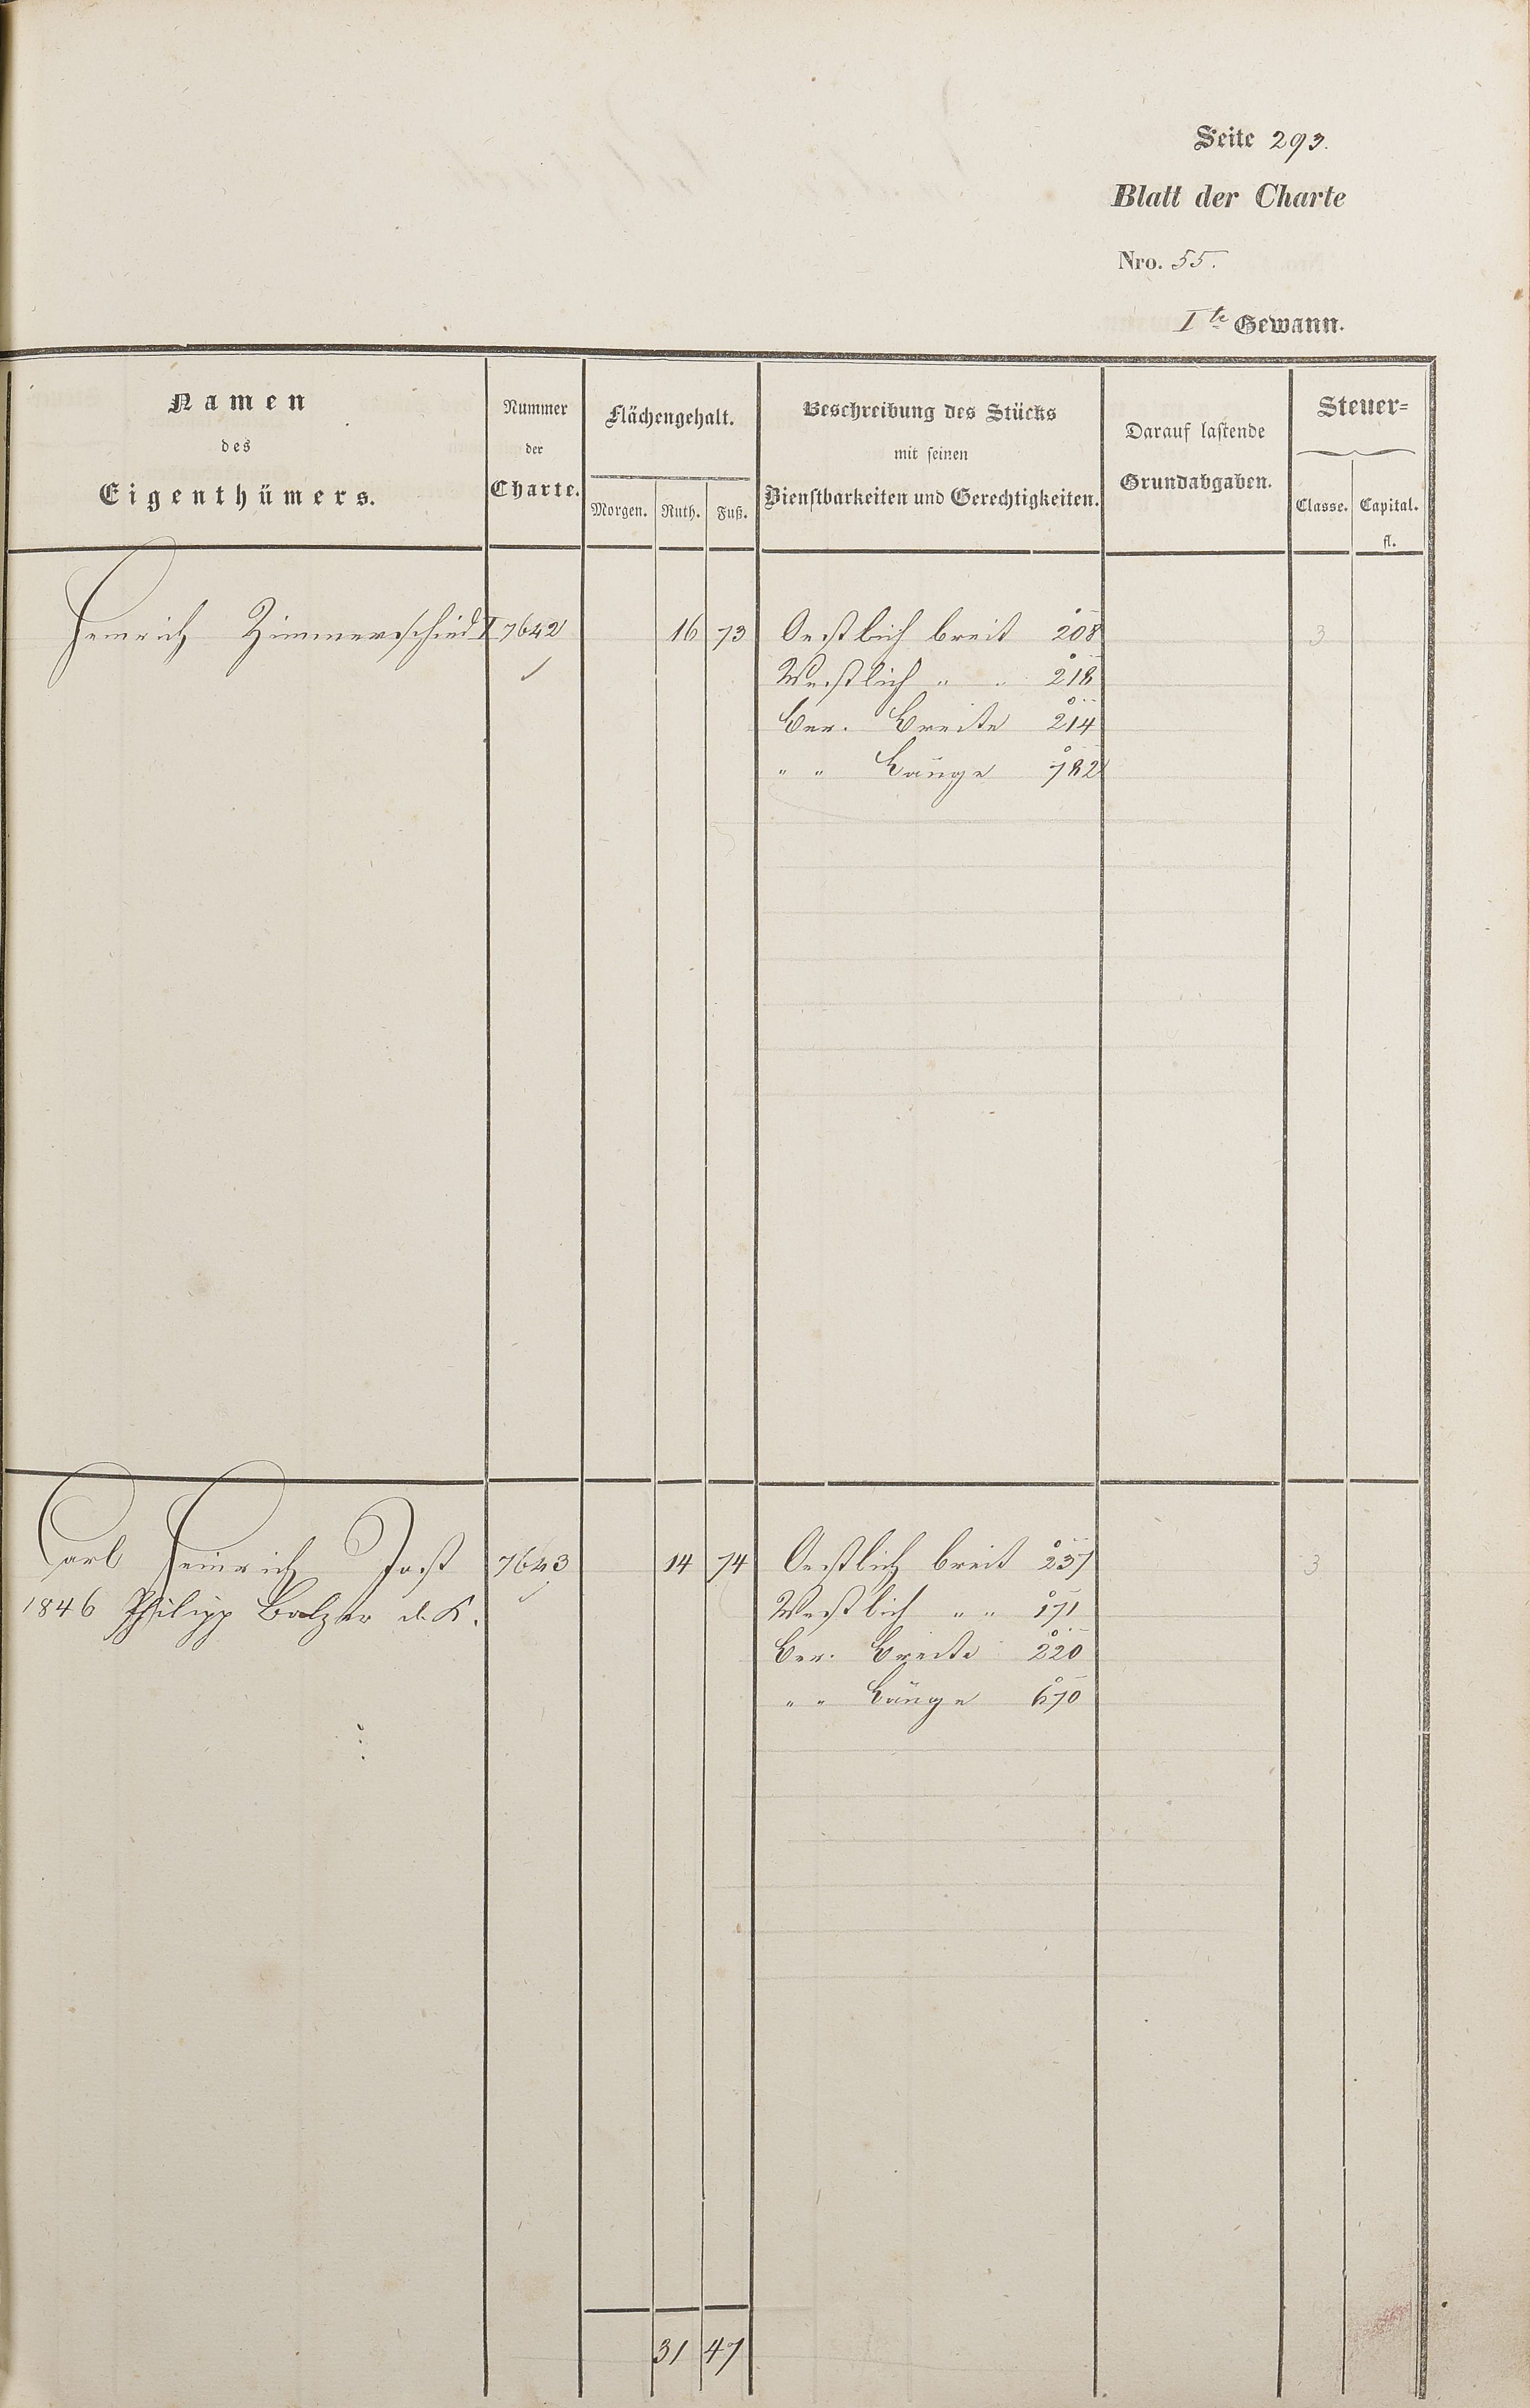 Seite 293.
Blatt der Charte
Nro. 55.
Ite Gewann.
Namen
des
Eigenthümers.
Nummer
der
Charte.
Flächengehalt.
Morgen. Ruth. Fuß.
Beschreibung des Stücks
mit seinen
Dienstbarkeiten und Gerechtigkeiten.
Darauf lastende
Grundabgaben.
Steuer=
Classe. Capital.
fl.
Heinrich Zimmerschied I 7642 16 73 Oestlich breit 208 3
Westlich " " 218
Ber. Breite 214
" " Länge 782
Carl Heinrich Jost 7643 14 74 Oestlich breit 237 3
1846 Philipp Balzer d. K. Westlich " " 171
Ber. Breite 220
" " Länge 670
31 47